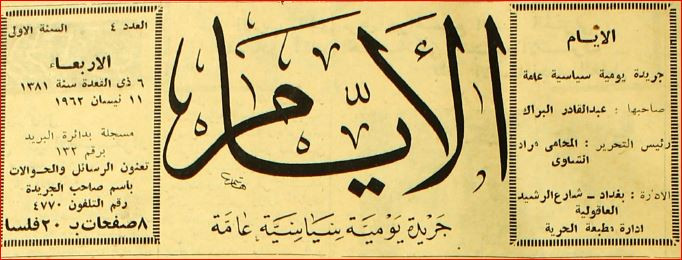 الايام
جريدة يومية سياسية عامة
صاحبها : عبدالقادر البراك
رئيس التحرير : المحامي مراد
الادارة : بغداد ــ شارع الرشيد
العاقولية
ادارة مطبعة الحرية
الأيام
جريدة يومية سياسية عامة
العدد ٤ السنة الاولى
الاربعاء
٦ ذي القعدة سنة ١٣٨١
١١ نيسان ١٩٦٢
مسجلة بدائرة البريد
برقم ١٣٢
تعنون الرسائل والحوالات
باسم صاحب الجريدة
رقم التلفون ٤٧٧٠
٨ صفحات بـ ٢٠ فلسا